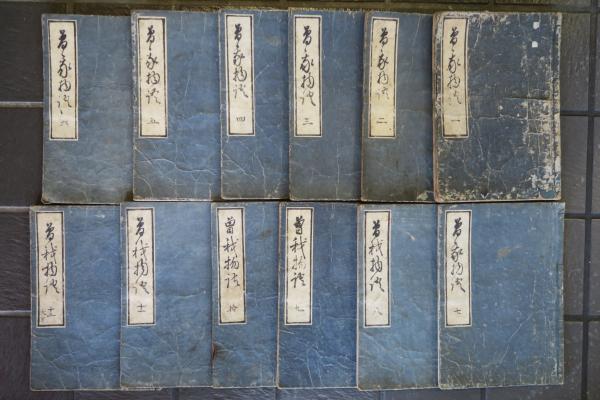 曽我物語 一
曽我物語 二
曽我物語 三
曽我物語 四
曽我物語 五
曽我物語 六
曽我物語 七
曽我物語 八
曽我物語 九
曽我物語 拾
曽我物語 十一
曽我物語 十二